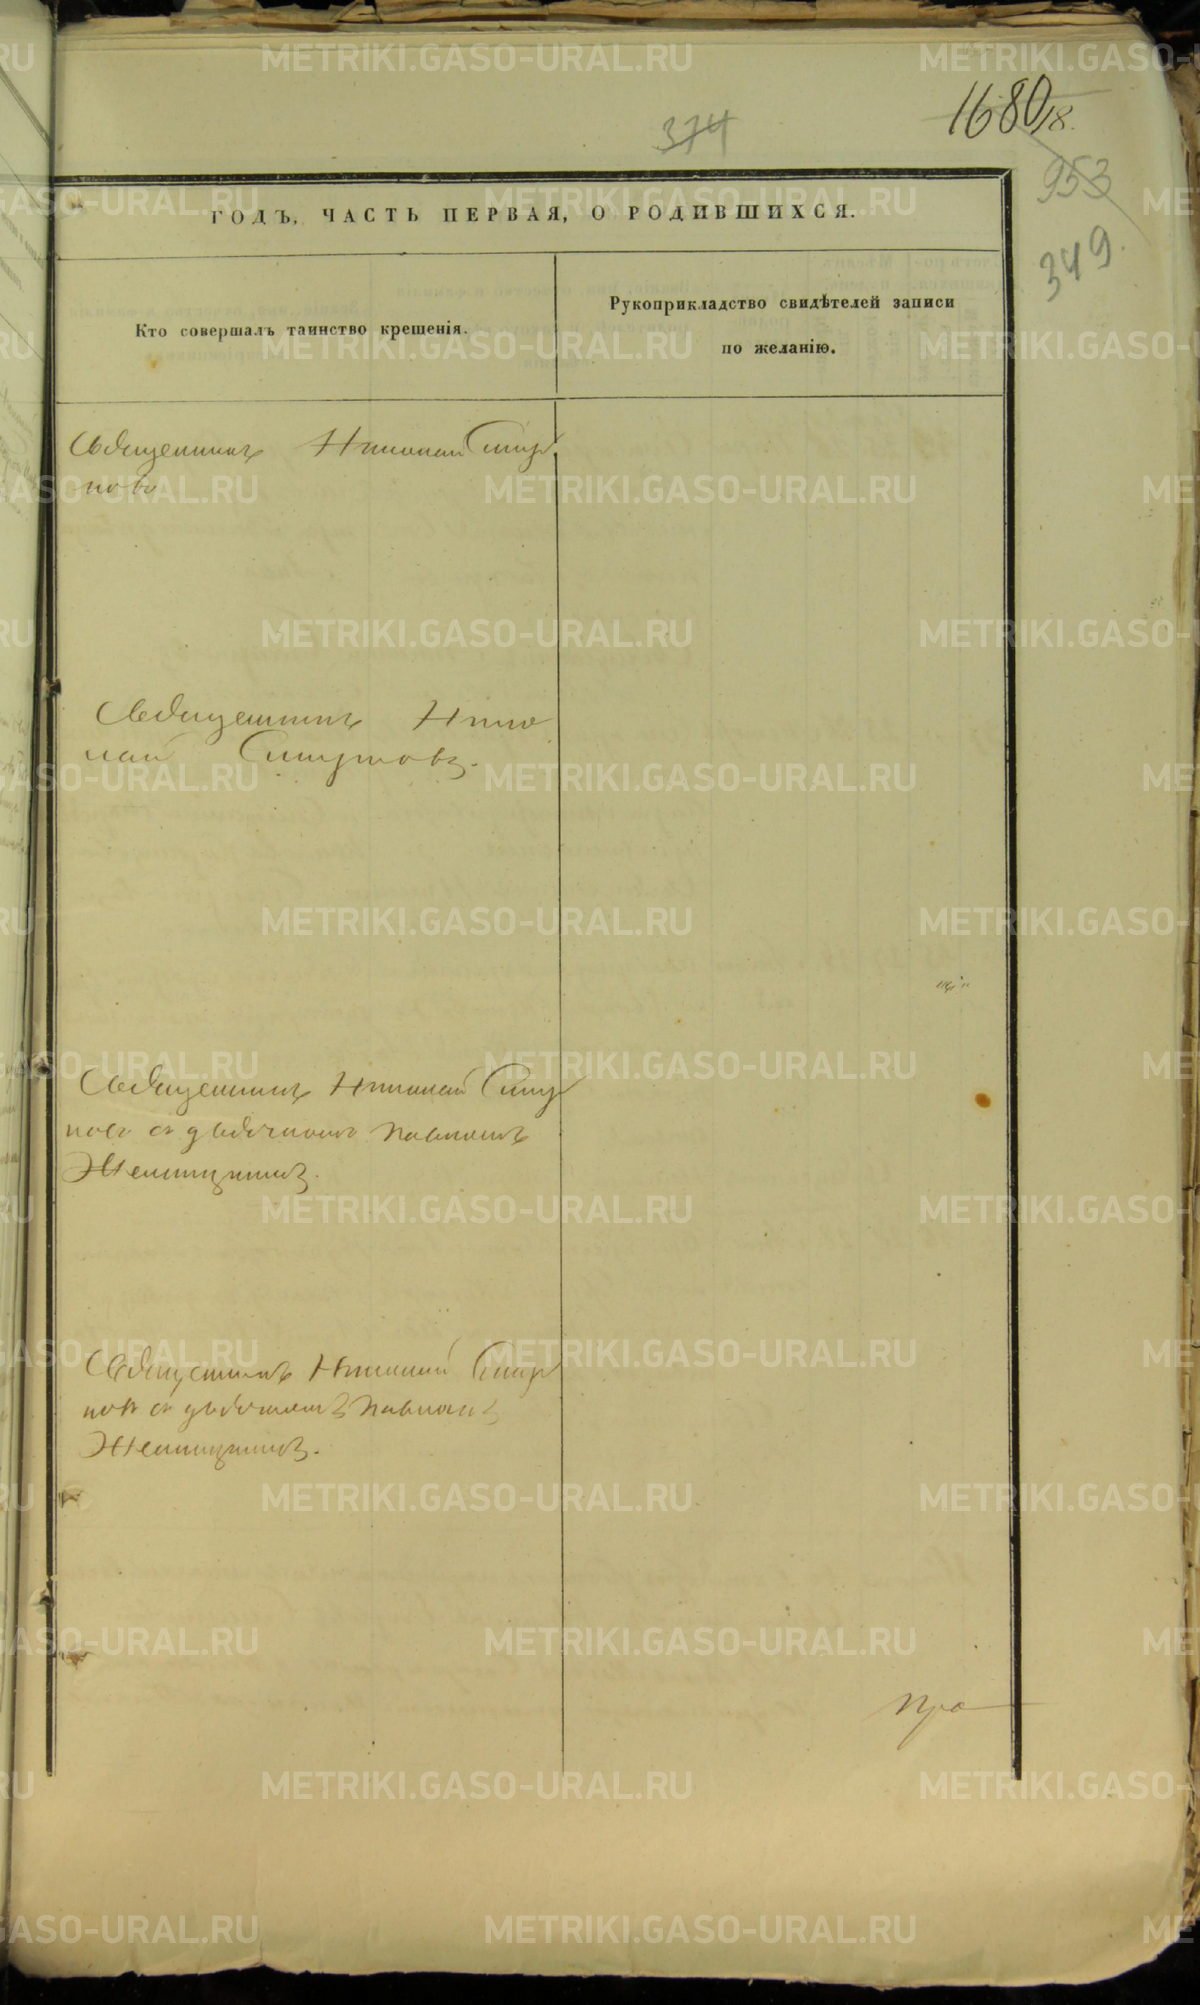 374
1680/18.
953
349.
ГОДЪ, ЧАСТЬ ПЕРВАЯ, О РОДИВШИХСЯ.
Кто совершалъ таинство крещенія.
Рукоприкладство свидѣтелей записи
по желанію.
Священникъ Николай Смир
новъ
Священникъ Нико
лай Смирновъ.
Священникъ Николай Смир
новъ съ дьячкомъ Павломъ
Священникъ Николай Смир
новъ съ дьячкомъ Павломъ
METRIKI.GASO-URAL.RU